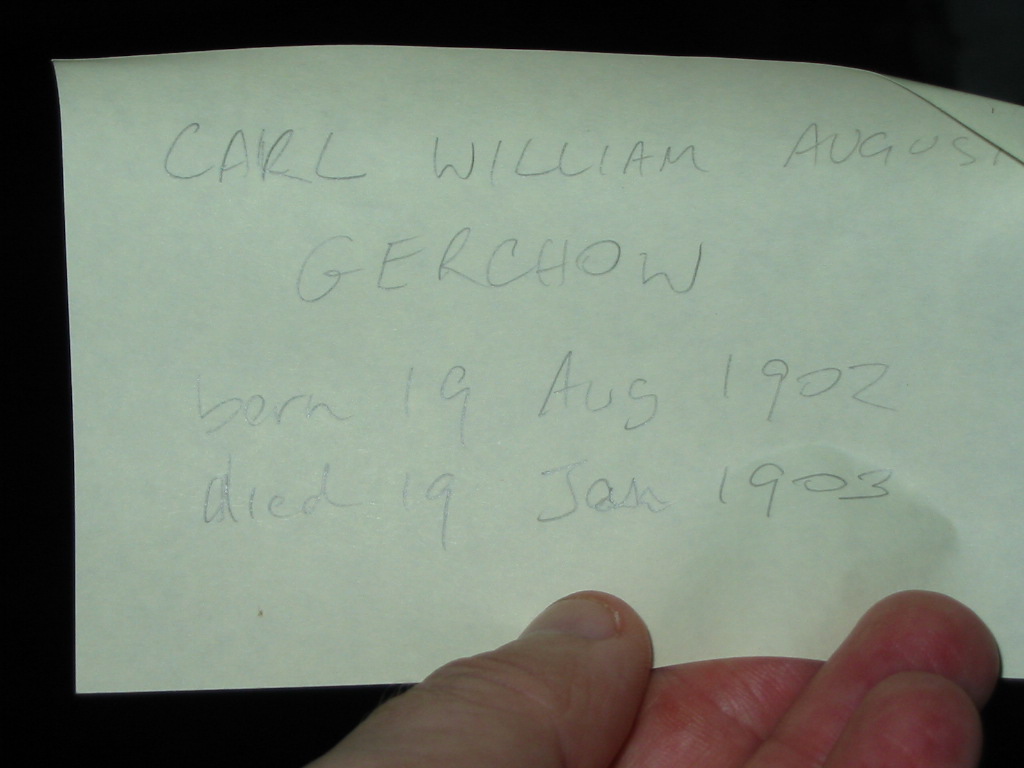 CARL WILLIAM AUGUST
GERCHOW
born 19 Aug 1902
died 19 Jan 1903